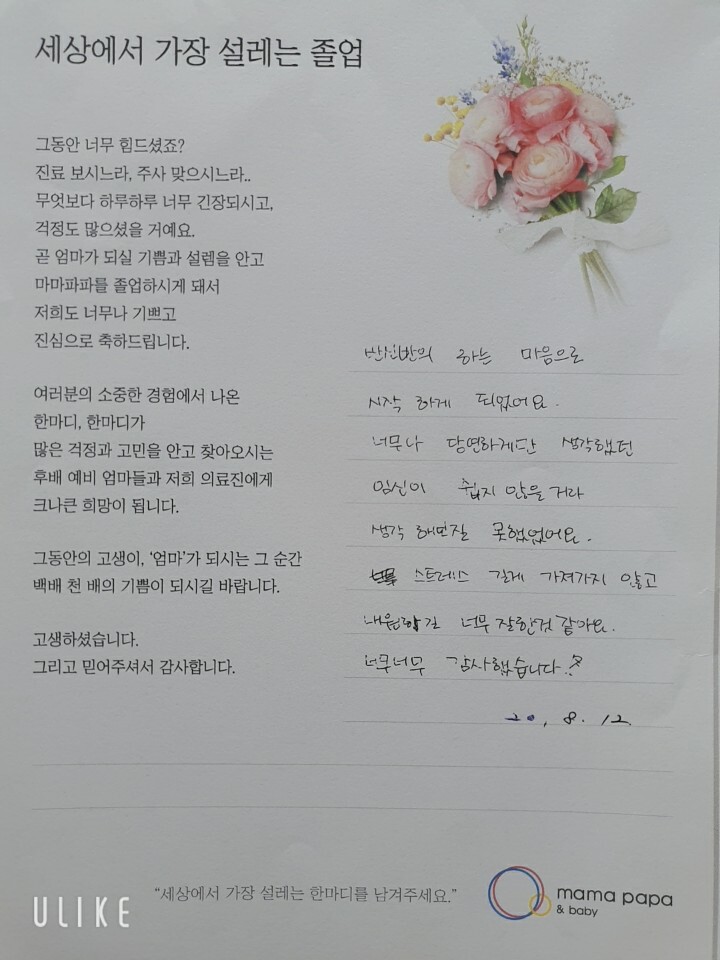 세상에서 가장 설레는 졸업
그동안 너무 힘드셨죠?
진료 보시느라, 주사 맞으시느라..
무엇보다 하루하루 너무 긴장되시고,
걱정도 많으셨을 거예요.
곧 엄마가 되실 기쁨과 설렘을 안고
마마파파를 졸업하시게 돼서
저희도 너무나 기쁘고
진심으로 축하드립니다.
여러분의 소중한 경험에서 나온
한마디, 한마디가
많은 걱정과 고민을 안고 찾아오시는
후배 예비 엄마들과 저희 의료진에게
크나큰 희망이 됩니다.
그동안의 고생이, '엄마'가 되시는 그 순간
백배 천 배의 기쁨이 되시길 바랍니다.
고생하셨습니다.
그리고 믿어주셔서 감사합니다.
반신반의 하는 마음으로
시작 하게 되었어요.
너무나 당연하게만 생각했던
임신이 쉽지 않을 거라
생각 해보질 못했었어요.
스트레스 길게 가져가지 않고
내원하길 너무 잘한것 같아요.
너무너무 감사했습니다!
20. 8. 12
"세상에서 가장 설레는 한마디를 남겨주세요."
mama papa
& baby
ULIKE